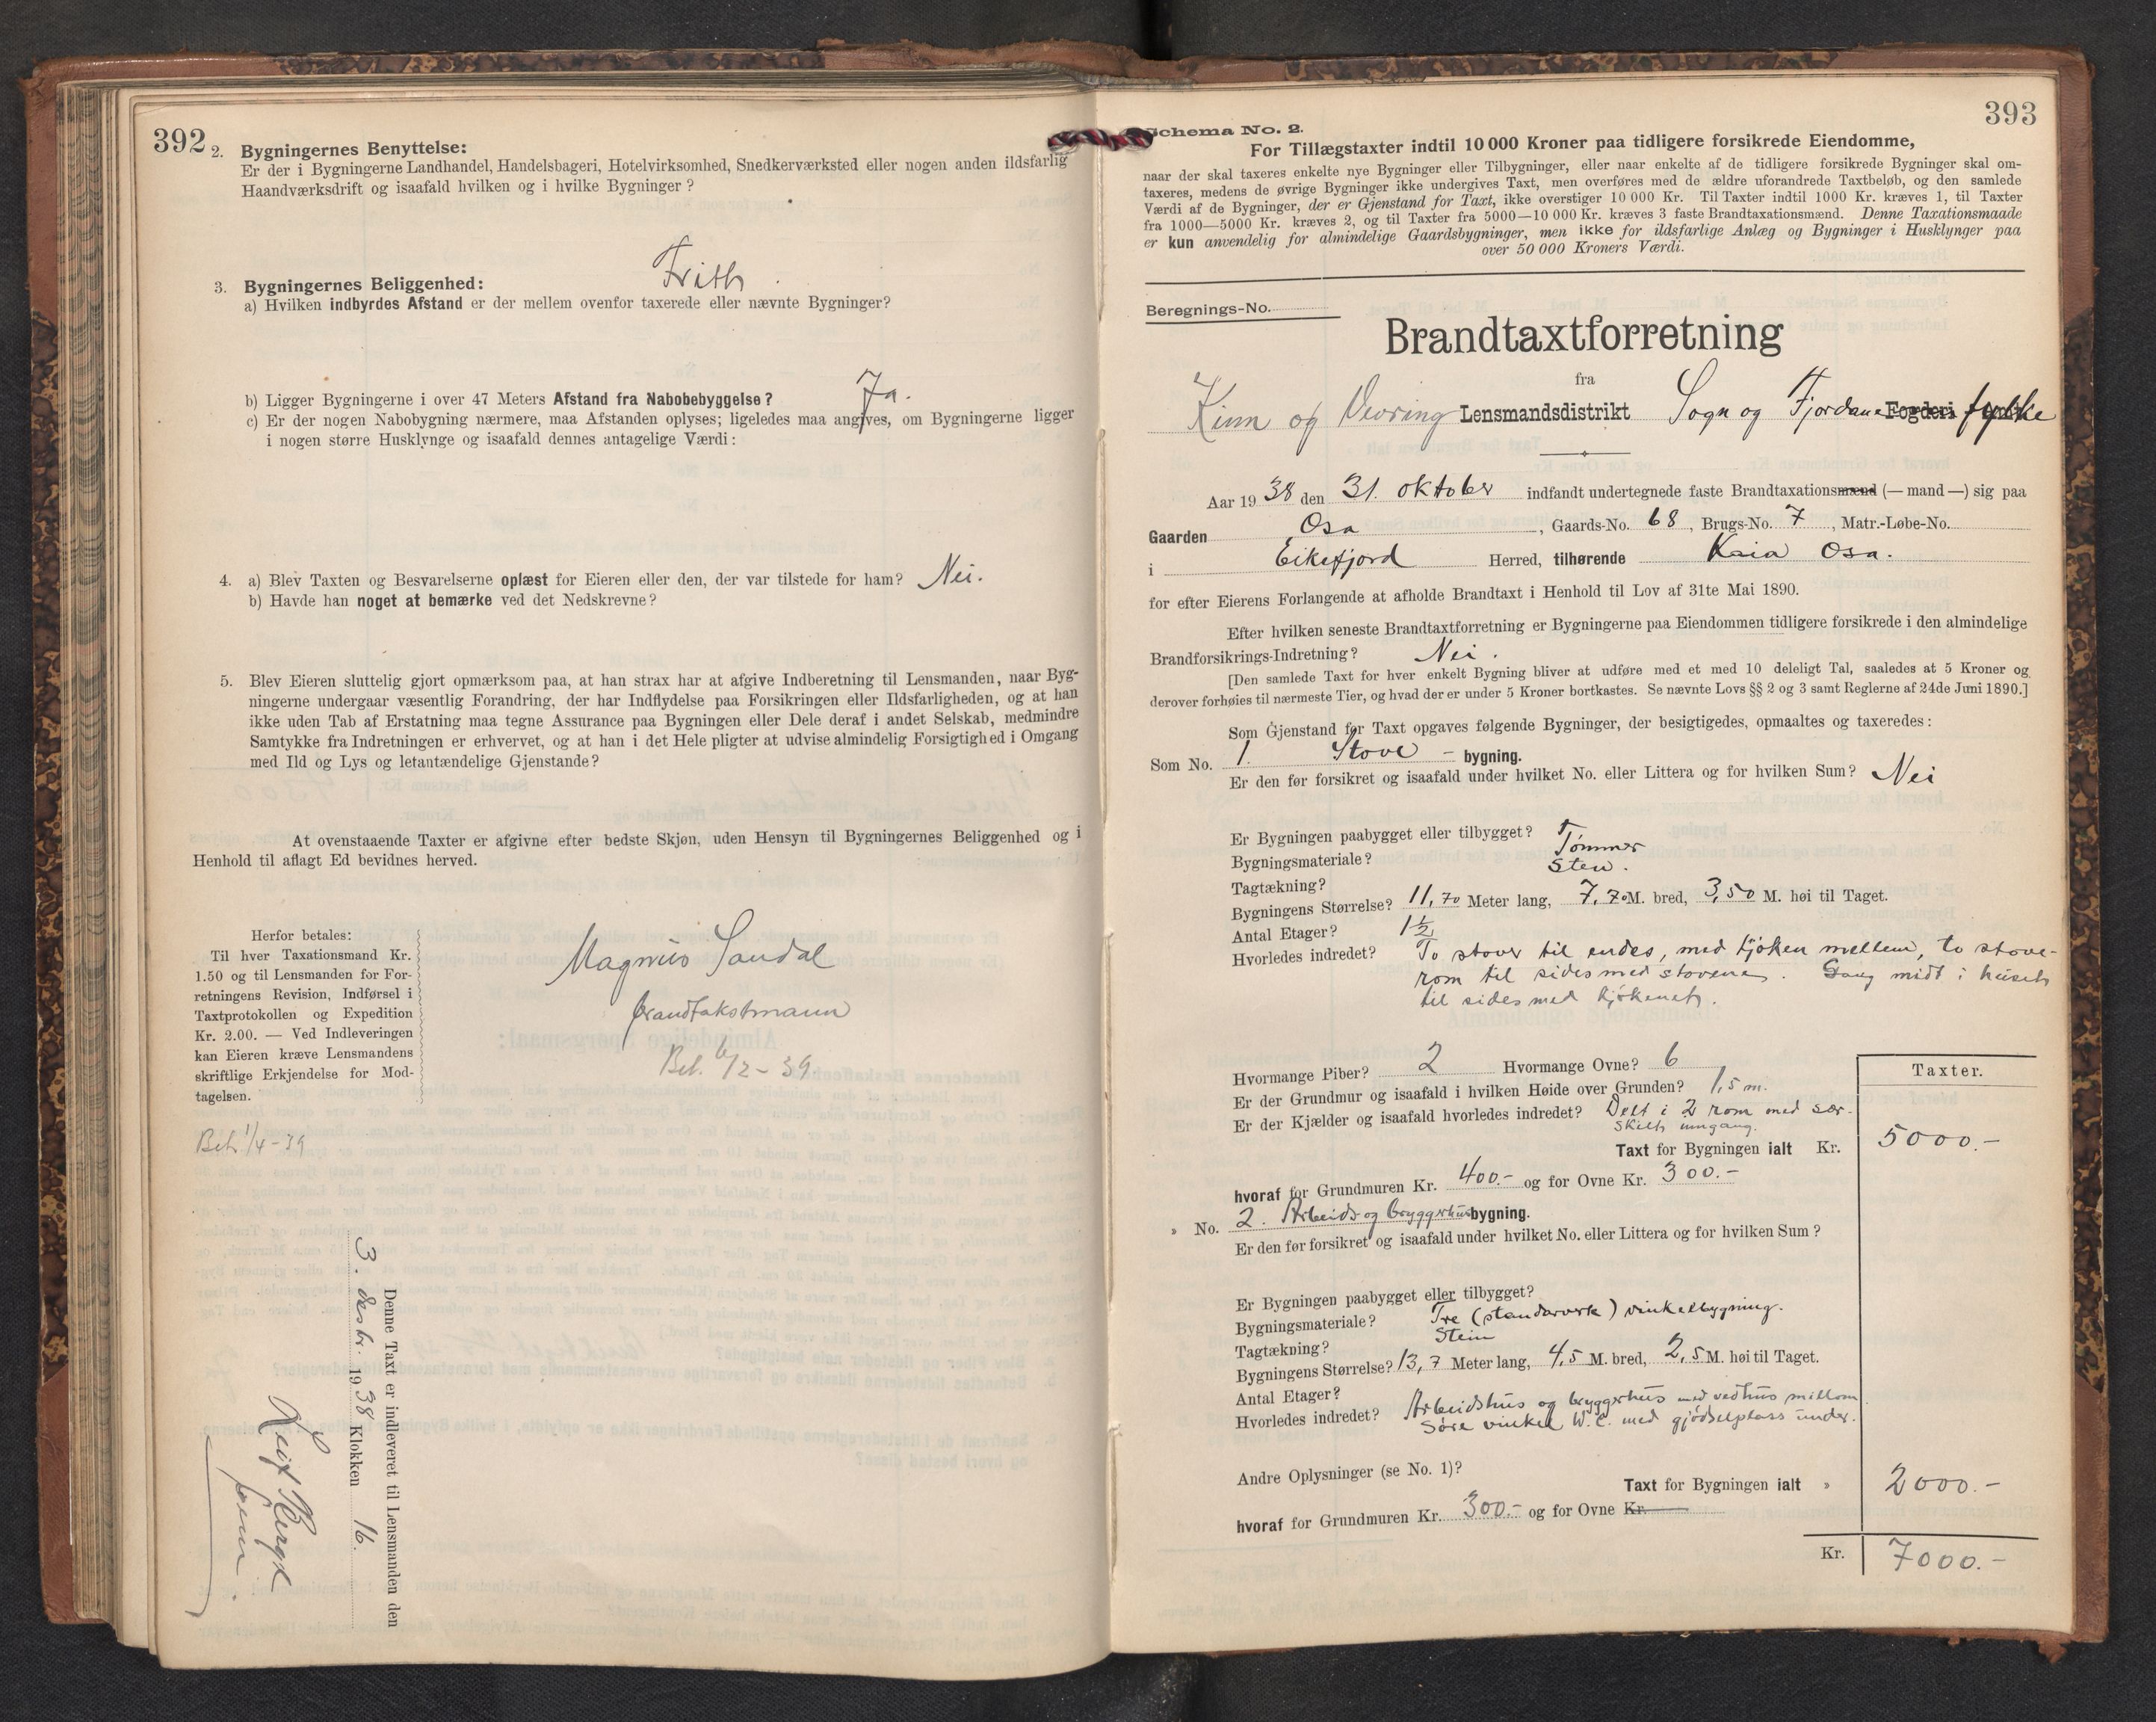 392
2. Bygningernes Benyttelse:
Er der i Bygningerne Landhandel, Handelsbageri, Hotelvirksomhed, Snedkerværksted eller nogen anden ildsfarlig
Haandværksdrift og isaafald hvilken og i hvilke Bygninger?
3. Bygningernes Beliggenhed: Fritt.
a) Hvilken indbyrdes Afstand er der mellem ovenfor taxerede eller nævnte Bygninger?
b) Ligger Bygningerne i over 47 Meters Afstand fra Nabobebyggelse? Ja.
c) Er der nogen Nabobygning nærmere, maa Afstanden oplyses; ligeledes maa angives, om Bygningerne ligger
i nogen større Husklynge og isaafald dennes antagelige Værdi:
4. a) Blev Taxten og Besvarelserne oplæst for Eieren eller den, der var tilstede for ham? Nei.
b) Havde han noget at bemærke ved det Nedskrevne?
5. Blev Eieren sluttelig gjort opmærksom paa, at han strax har at afgive Indberetning til Lensmanden, naar Byg-
ningerne undergaar væsentlig Forandring, der har Indflydelse paa Forsikringen eller Ildsfarligheden, og at han
ikke uden Tab af Erstatning maa tegne Assurance paa Bygningen eller Dele deraf i andet Selskab, medmindre
Samtykke fra Indretningen er erhvervet, og at han i det Hele pligter at udvise almindelig Forsigtighed i Omgang
med Ild og Lys og letantændelige Gjenstande?
At ovenstaaende Taxter er afgivne efter bedste Skjøn, uden Hensyn til Bygningernes Beliggenhed og i
Henhold til aflagt Ed bevidnes herved.
Herfor betales:
Til hver Taxationsmand Kr.
1.50 og til Lensmanden for For-
retningens Revision, Indførsel i
Taxtprotokollen og Expedition
Kr. 2.00. — Ved Indleveringen
kan Eieren kræve Lensmandens
skriftlige Erkjendelse for Mod-
tagelsen.
Magnus Sandal
brandtakstmann
Bet. 6/2-39.
Bet. 1/4-39
Denne Taxt er indleveret til Lensmanden den
3. desbr. 1938 Klokken 16.
Leif Bergh
393
Schema No. 2.
For Tillægstaxter indtil 10 000 Kroner paa tidligere forsikrede Eiendomme,
naar der skal taxeres enkelte nye Bygninger eller Tilbygninger, eller naar enkelte af de tidligere forsikrede Bygninger skal om-
taxeres, medens de øvrige Bygninger ikke undergives Taxt, men overføres med de ældre uforandrede Taxtbeløb, og den samlede
Værdi af de Bygninger, der er Gjenstand for Taxt, ikke overstiger 10 000 Kr. Til Taxter indtil 1000 Kr. kræves 1, til Taxter
fra 1000—5000 Kr. kræves 2, og til Taxter fra 5000—10 000 Kr. kræves 3 faste Brandtaxationsmænd. Denne Taxationsmaade
er kun anvendelig for almindelige Gaardsbygninger, men ikke for ildsfarlige Anlæg og Bygninger i Husklynger paa
over 50 000 Kroners Værdi.
Beregnings-No.
Brandtaxtforretning
fra
Kinn og Vevring Lensmandsdistrikt Sogn og Fjordane Fogderi fylke
Aar 1938 den 31. oktober indfandt undertegnede faste Brandtaxationsmænd (— mand —) sig paa
Gaarden Osa, Gaards-No. 68, Brugs-No. 7, Matr.-Løbe-No.
i Eikefjord Herred, tilhørende Kaia Osa.
for efter Eierens Forlangende at afholde Brandtaxt i Henhold til Lov af 31te Mai 1890.
Efter hvilken seneste Brandtaxtforretning er Bygningerne paa Eiendommen tidligere forsikrede i den almindelige
Brandforsikrings-Indretning? Nei.
[Den samlede Taxt for hver enkelt Bygning bliver at udføre med et med 10 deleligt Tal, saaledes at 5 Kroner og
derover forhøies til nærmeste Tier, og hvad der er under 5 Kroner bortkastes. Se nævnte Lovs §§ 2 og 3 samt Reglerne af 24de Juni 1890.]
Som Gjenstand for Taxt opgaves følgende Bygninger, der besigtigedes, opmaaltes og taxeredes:
Som No. 1. Stove - bygning.
Er den før forsikret og isaafald under hvilket No. eller Littera og for hvilken Sum? Nei
Er Bygningen paabygget eller tilbygget?
Bygningsmateriale? Tømmer
Tagtækning? Sten.
Bygningens Størrelse? 11,70 Meter lang, 7,70 M. bred, 3,50 M. høi til Taget.
Antal Etager? 1½
Hvorledes indredet? To stover til endes, med kjøken mellem, to stove-
rom til sides med stovene. Gang midt i huset
til sides med kjøkenet.
Hvormange Piber? 2 Hvormange Ovne? 6
Er der Grundmur og isaafald i hvilken Høide over Grunden? 1,5 m.
Er der Kjælder og isaafald hvorledes indredet? Delt i 2 rom med sær-
skilt inngang.
Taxter.
Taxt for Bygningen ialt Kr. 5000.-
hvoraf for Grundmuren Kr. 400.- og for Ovne Kr. 300.-
» No. 2. Arbeids og bryggerhus bygning.
Er den før forsikret og isaafald under hvilket No. eller Littera og for hvilken Sum?
Er Bygningen paabygget eller tilbygget?
Bygningsmateriale? Tre (standarverk) vinkelbygning.
Tagtækning? Stein
Bygningens Størrelse? 13,7 Meter lang, 4,5 M. bred, 2,5 M. høi til Taget.
Antal Etager?
Hvorledes indredet? Arbeidshus og bryggerhus med vedhus millom
Søre vinkel W.C. med gjødselplass under.
Andre Oplysninger (se No. 1)?
Taxt for Bygningen ialt » 2000.-
hvoraf for Grundmuren Kr. 300.- og for Ovne Kr.
Kr. 7000.-